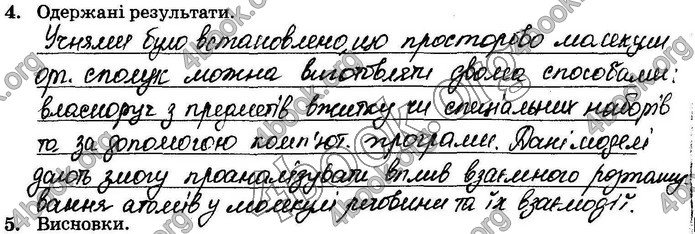 4. Одержані результати.
Учнями було встановлено, що просторово молекули
орг. сполук можна виготовляти двома способами:
власноруч з предметів вжитку чи спеціальних наборів
та за допомогою комп'ют. програми. Дані моделі
дають змогу проаналізувати вплив взаємного розташу
вання атомів у молекулі речовини та їх взаємодії.
5. Висновки.